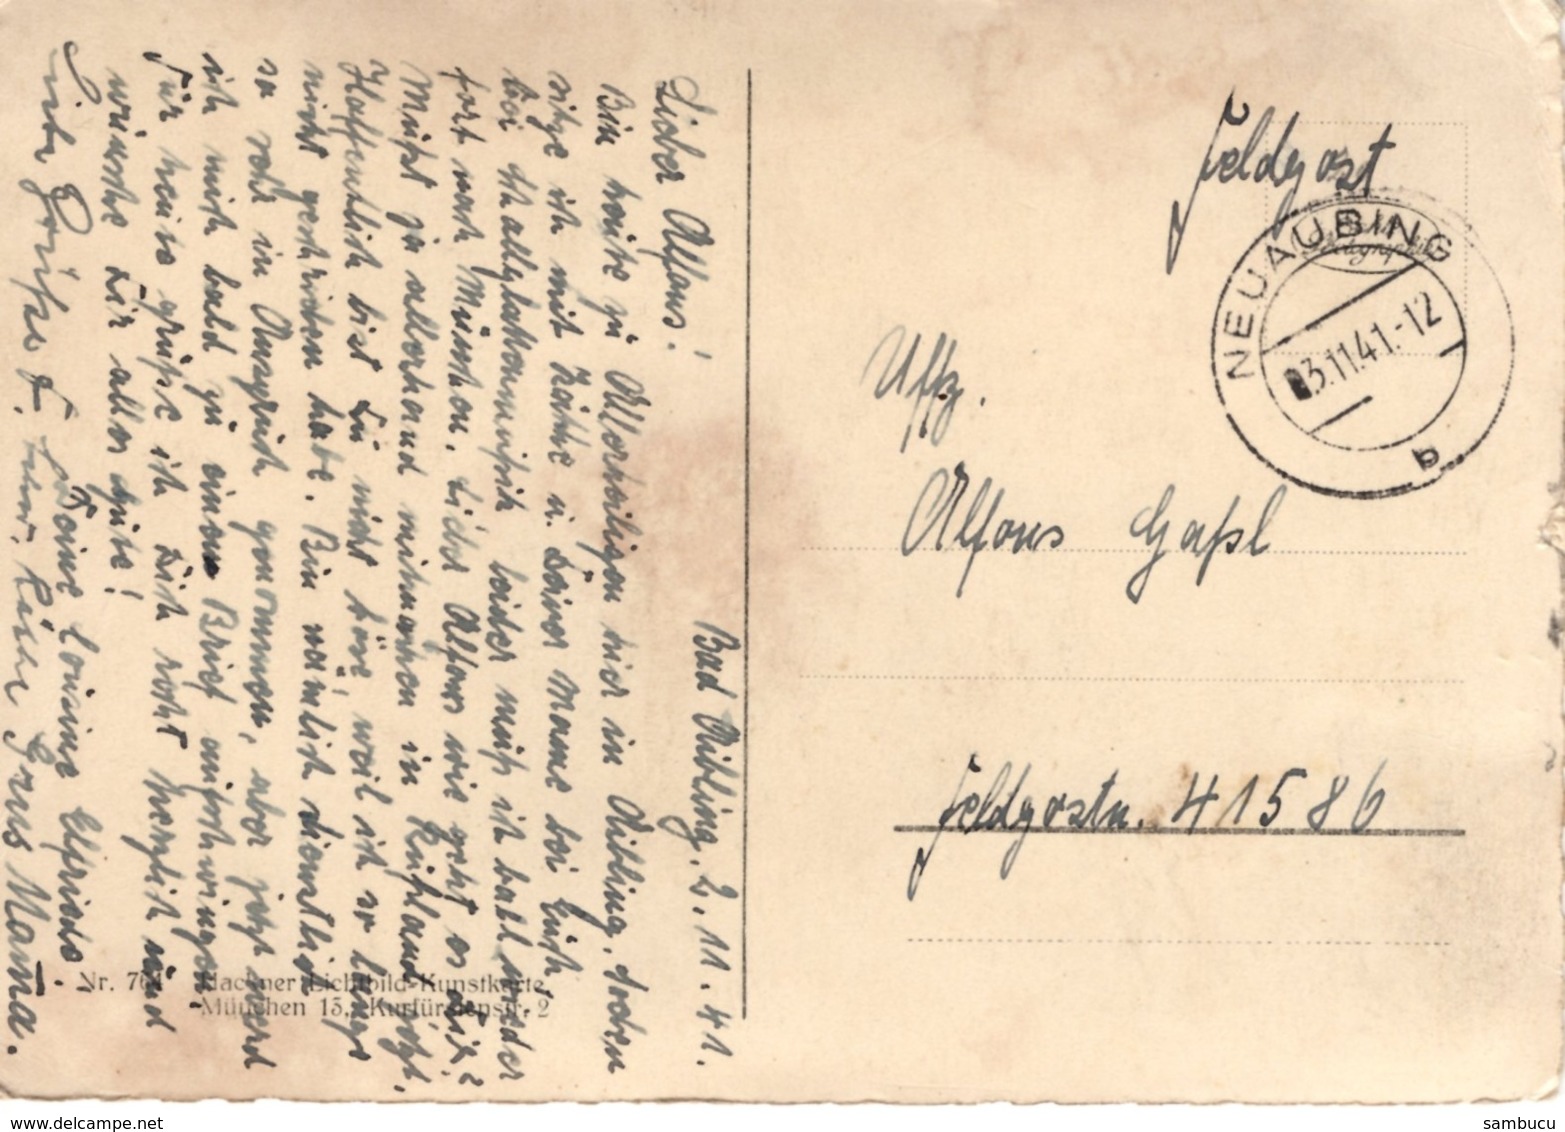 Bad Aibling, 2.11.41.
Lieber Alfons!
Bin heute zu Allerheiligen hier in Aibling. Soeben
sitze ich mit Käthe u. Deiner Mame bei Euch
bei Schallplattenmusik leider muß ich bald wieder
fort nach München. Lieber Alfons wie geht es Dir?
Mußt ja allerhand mitmachen in Rußland jetzt.
Hoffentlich bist Du nicht böse, weil ich so lange
nicht geschrieben habe. Bin nämlich dienstlich
so sehr in Anspruch genommen, aber jetzt werd
ich mich bald zu einem Brief aufschwingen.
Für heute grüße ich Dich recht herzlich und
wünsche Dir alles gute!
Deine Cousine Elfriede
Gruß Mama.
Feldpost
NEUAUBING
3.11.41.-12
b
Uffz.
Alfons Gaßl
Feldpostn. 41586
Nr. 764 Hackner Lichtbild-Kunstkarte,
München 13, Kurfürstenstr. 2
sambucu